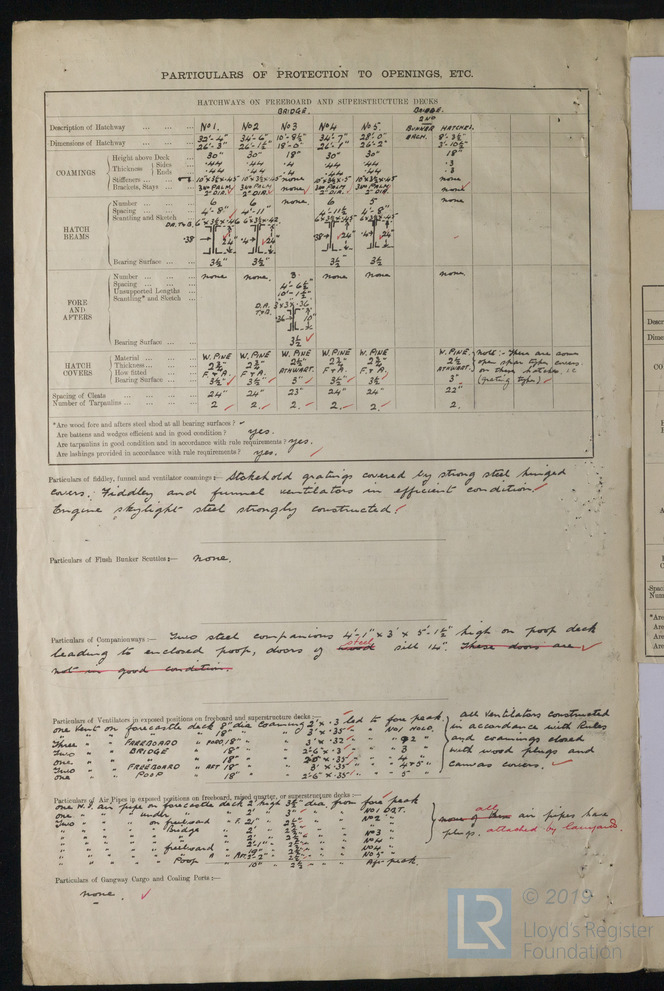 PARTICULARS OF PROTECTION TO OPENINGS, ETC.
HATCHWAYS ON FREEBOARD AND SUPERSTRUCTURE DECKS
BRIDGE. BRIDGE.
2ND
Description of Hatchway No 1. No 2 No 3 No 4 No 5. BUNKER HATCHES.
Dimensions of Hatchway 32'-4" 34'-6" 10'-8½" 34'-7" 28'-0" 8'-3½"
26'-3" 26'-1½" 18'-0" 26'-1" 26'-2" 3'-10½"
COAMINGS
Height above Deck 30" 30" 18" 30" 30" 18"
Thickness Sides .44 .44 .4 .44 .44 .3
Ends .44 .44 .4 .44 .44 .3
Stiffeners none none
Brackets, Stays none none
HATCH BEAMS
Number 6 6 none. 6 5 none
Spacing 4'-8" 4'-11" 4'-11½ 4'-8"
Scantling and Sketch
.38 24" .4 24" .38 24" .4 24"
Bearing Surface 3½" 3½" 3½ 3½"
FORE AND AFTERS
Number none none. 3. none none none.
Spacing 4'-6½"
Unsupported Lengths 10'-1½"
Scantling* and Sketch D.A. 3x3½.36
T&B.
.36 10"
Bearing Surface 3½
HATCH COVERS
Material W. PINE W. PINE W. PINE W. PINE W. PINE W. PINE.
Thickness 2¾" 2¾" 2½" 2¾" 2¾" 2½
How fitted F & A. F & A. ATHWART. F & A. F & A. ATHWART.
Bearing Surface 3½" 3½" 3" 3½" 3½ 3"
note :- There are some
open spar type covers
on these hatches, i.e
(grating type)
Spacing of Cleats 24" 24" 23" 24" 24" 22"
Number of Tarpaulins 2 2. 2. 2. 2. 2.
*Are wood fore and afters steel shod at all bearing surfaces? -
Are battens and wedges efficient and in good condition? yes.
Are tarpaulins in good condition and in accordance with rule requirements? yes.
Are lashings provided in accordance with rule requirements? yes.
Particulars of fiddley, funnel and ventilator coamings :— Stokehold gratings covered by strong steel hinged
covers. Fiddley and funnel ventilators in efficient condition.
Engine skylight steel strongly constructed.
Particulars of Flush Bunker Scuttles :— none.
Particulars of Companionways :— Two steel companions 4'-1" x 3' x 5'-1½" high on poop deck
leading to enclosed poop, doors of wood steel sill 14". These doors are
not in good condition.
Particulars of Ventilators in exposed positions on freeboard and superstructure decks :—
one vent on forecastle deck 8" dia coaming 2' x .3 led to fore peak.
" " " " 18" " " 3' x .35 " " No1 HOLD.
Three " " FREEBOARD " FORD. 18" " " 3' x .32 " " " 2 "
Two " " BRIDGE " 18" " " 2'-6" x .3 " " " 3 "
one " " " " 18" " " " " 4 "
Two " " FREEBOARD " AFT 18" " " 3' x .35 " " " 4 & 5 "
one " " POOP " 18" " " 2'-6" x .35 " " " 5 "
all ventilators constructed
in accordance with Rules
and coamings closed
with wood plugs and
canvas covers.
Particulars of Air Pipes in exposed positions on freeboard, raised quarter, or superstructure decks :—
one W.I. air pipe on forecastle deck 2' high 3½" dia. from fore peak
one " " " under " " 2' " 3" " " No 1 D.B.T.
Two " " " on freeboard " F. 21" " 2½" " " No 2 "
" " " " Bridge " 2' " 2½ " "
" " " " " " 2' " 2½ " " No 3 "
" " " " " " 2' " 2½ " " No 4 "
" " " " freeboard " 2'-1" " 2½ " " No 4 "
none of these all air pipes have
plugs. attached by lanyard.
Particulars of Gangway Cargo and Coaling Ports :—
none.
LR
© 2019
Lloyd's Register
Foundation